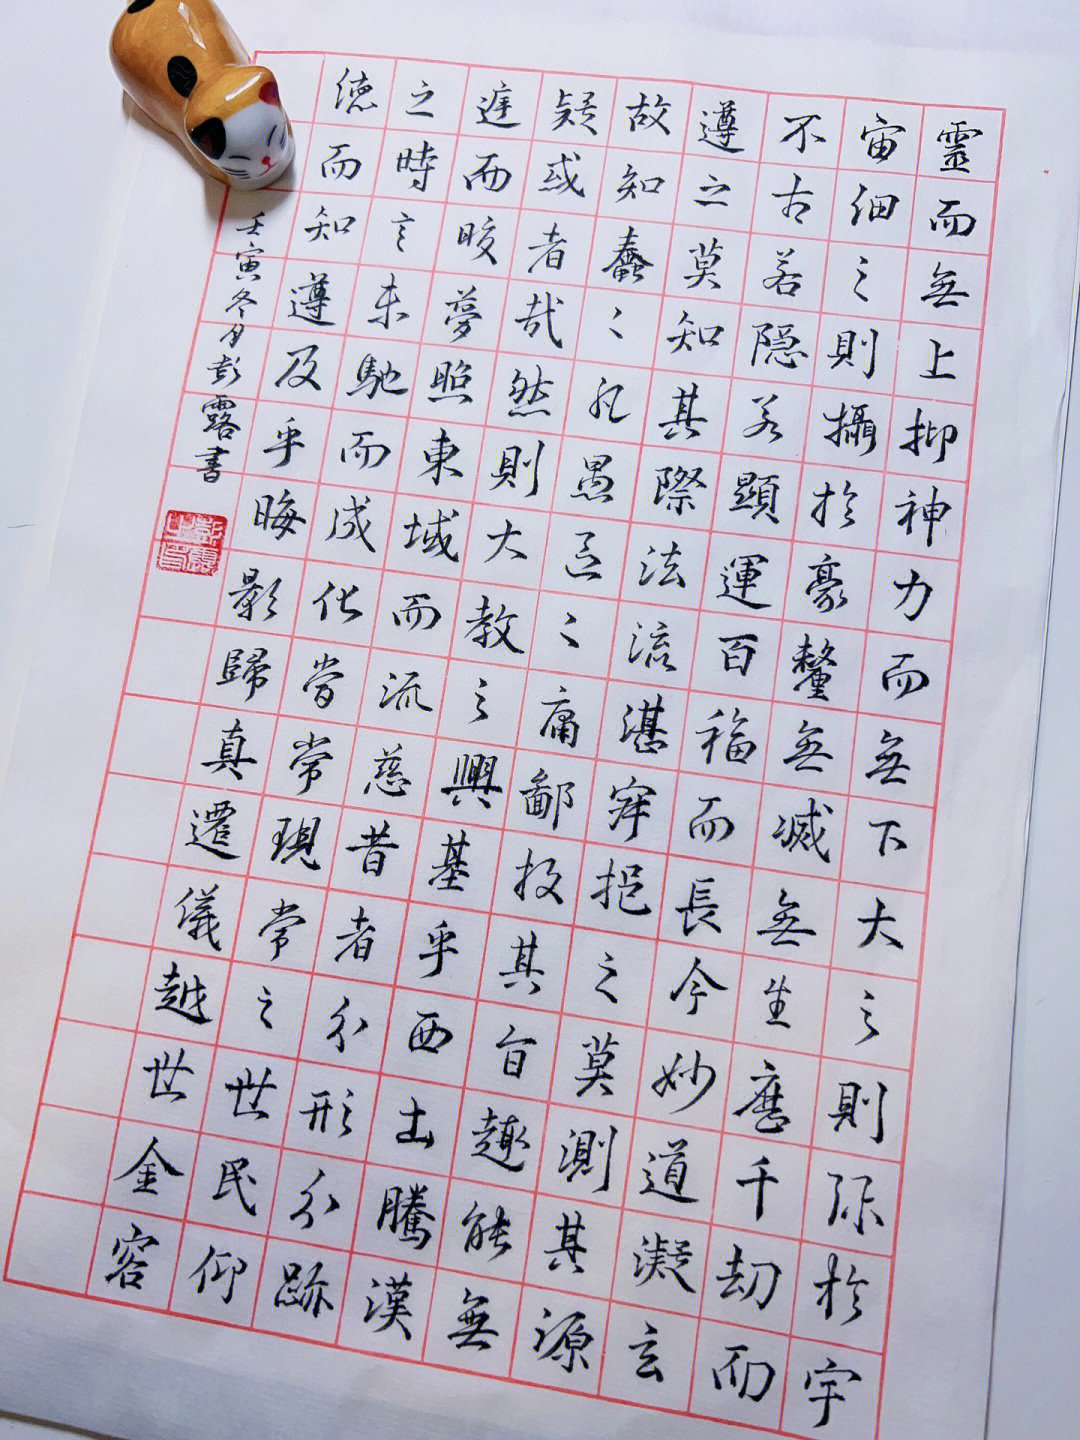 靈而無上抑神力而無下大之則弥於宇
宙細之則攝於豪釐無滅無生歷千劫而
不古若隱若顯運百福而長今妙道凝玄
遵之莫知其際法流湛寂挹之莫測其源
故知蠢々凡愚區々庸鄙投其旨趣能無
疑惑者哉然則大教之興基乎西土騰漢
庭而皎夢照東域而流慈昔者分形分跡
之時言未馳而成化當常現常之世民仰
德而知遵及乎晦影歸真遷儀越世金容
壬寅冬月彭露書
彭露之印